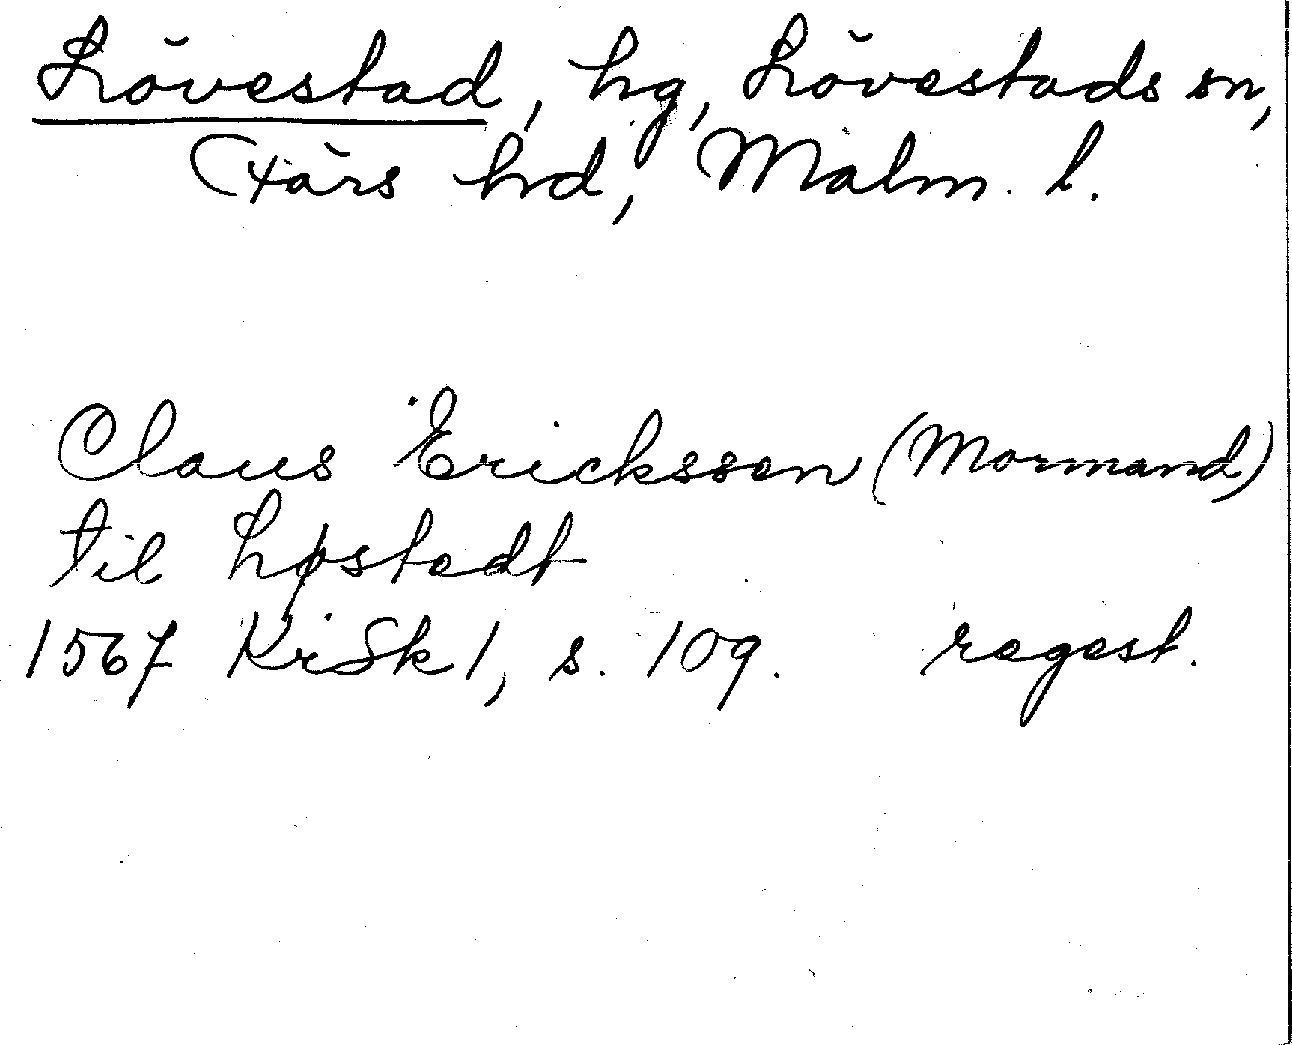 Lövestad, hg, Lövestads sn,
Färs hd, Malm. l.
Claus Ericksson (Mormand)
til Løstedt
1567 KrSk 1, s. 109. regest.